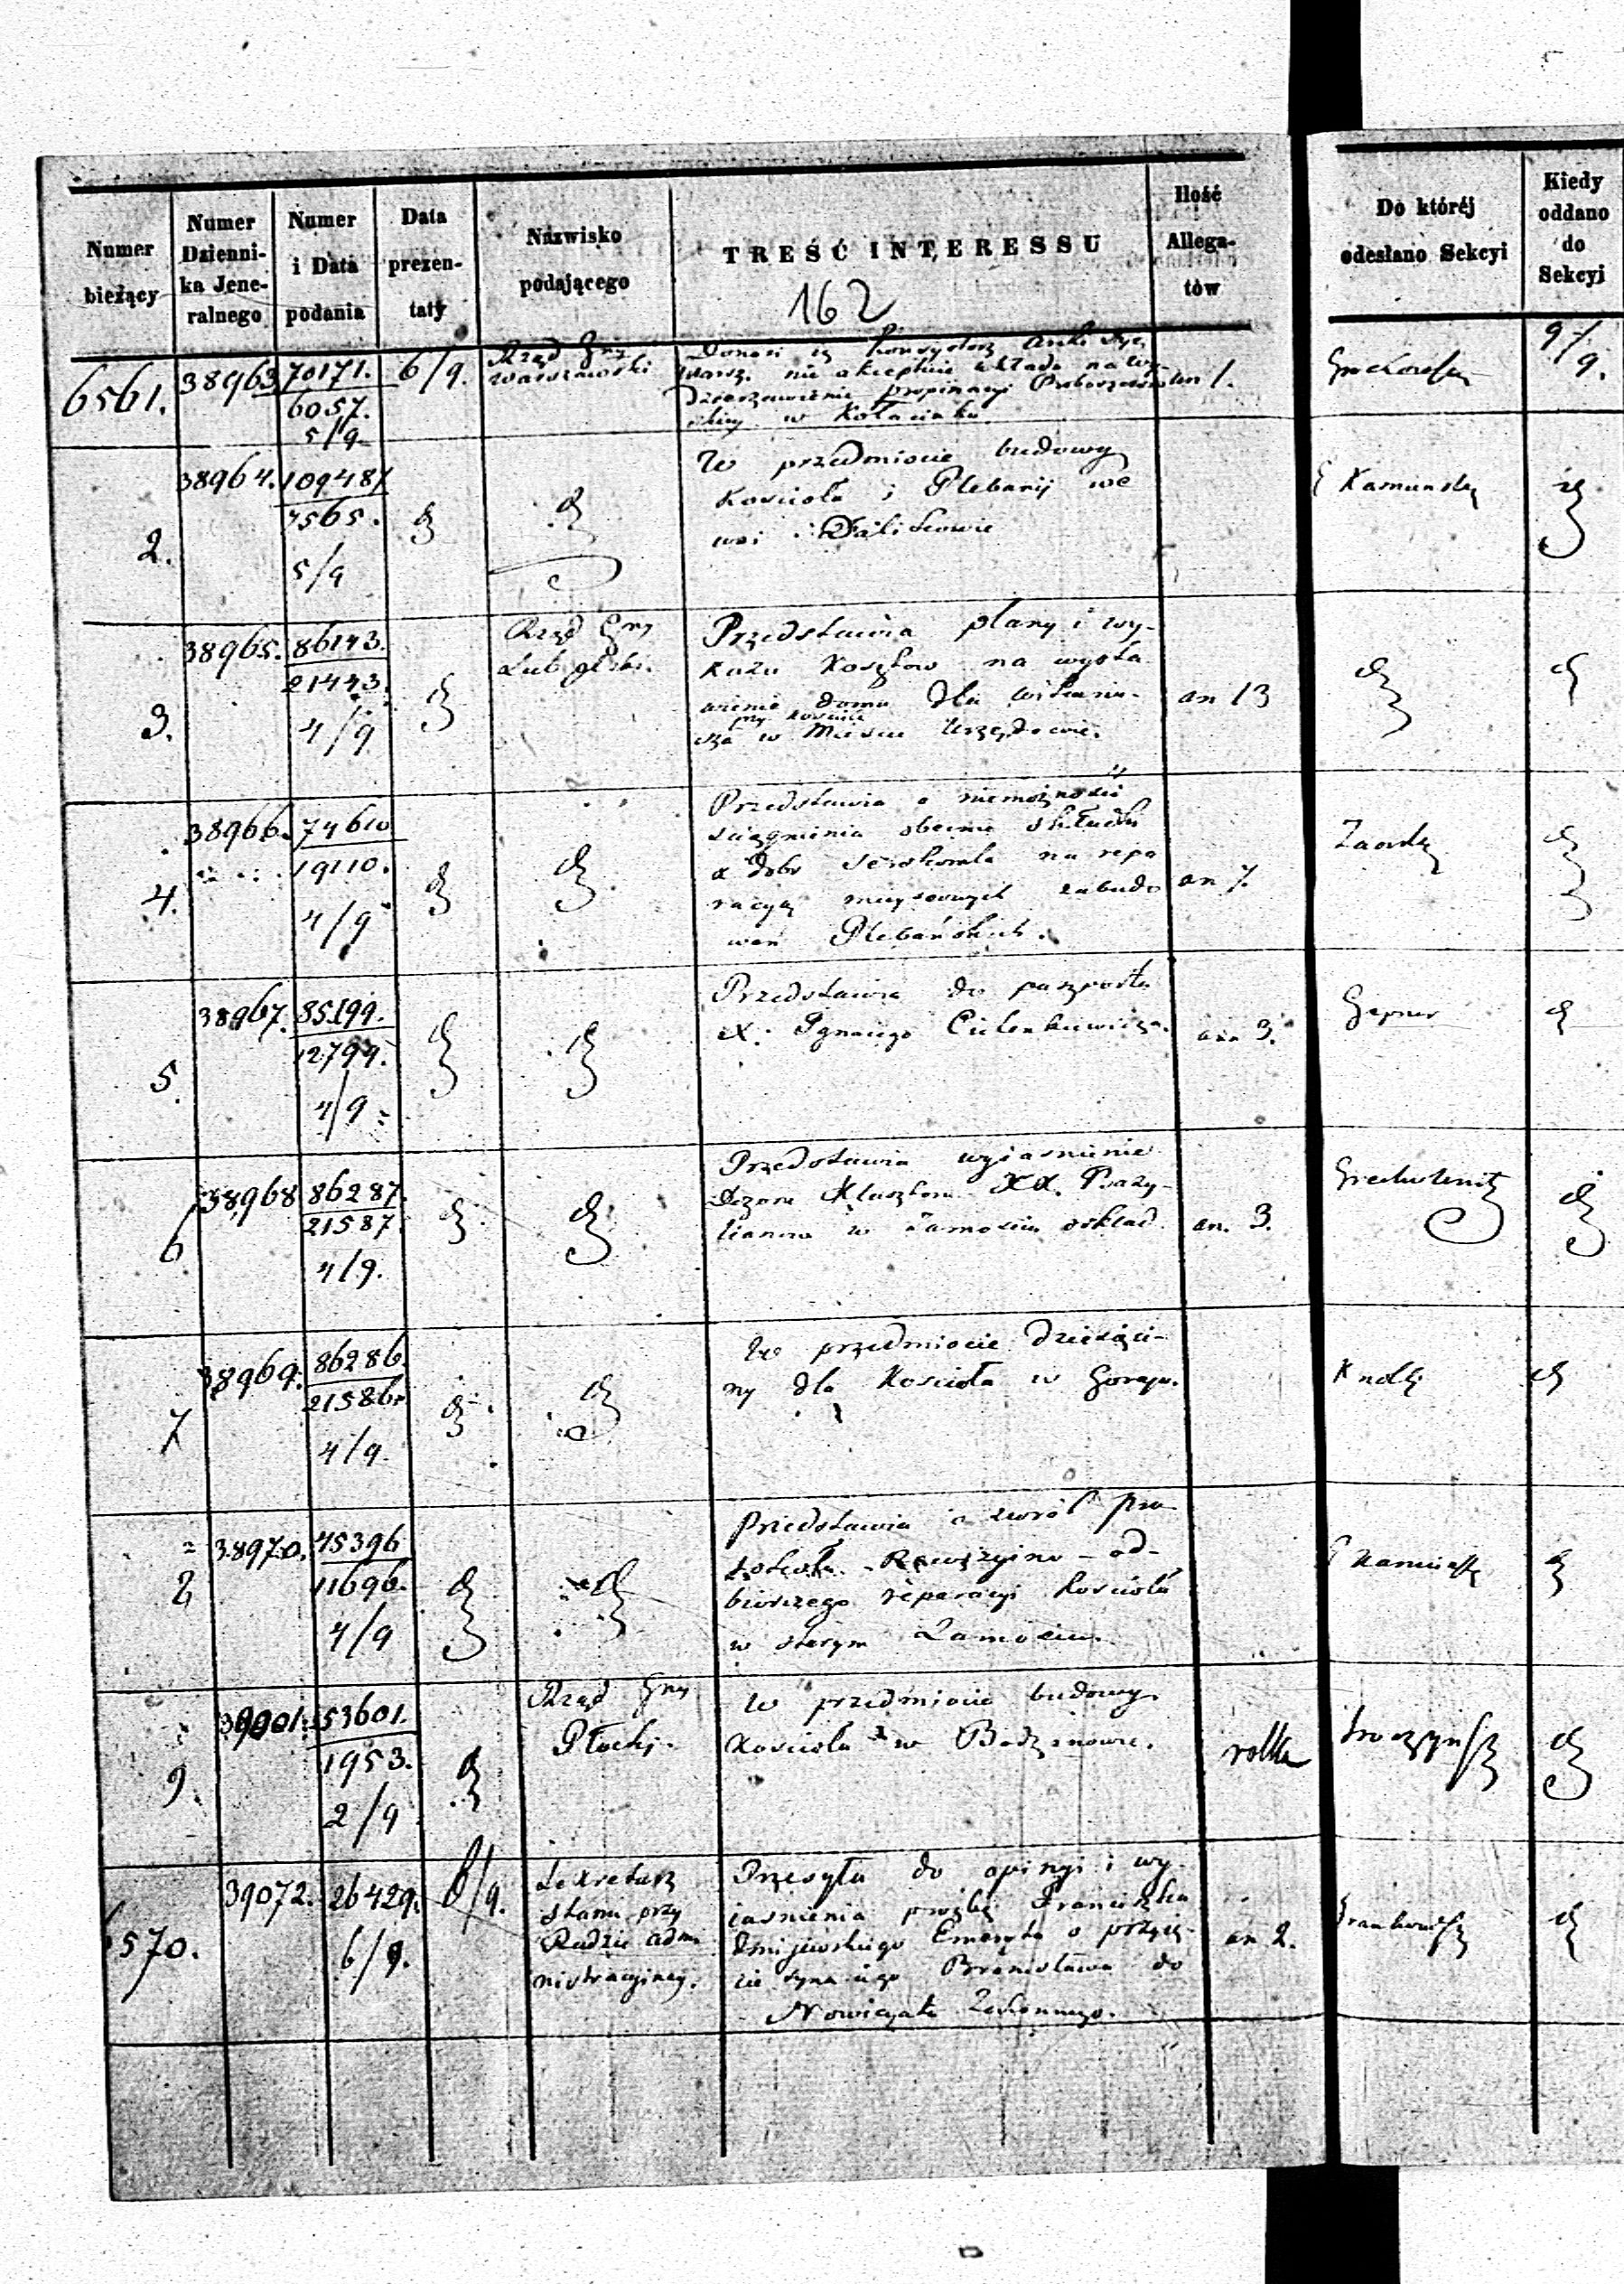 Numer bieżący
Numer Dzienni-
ka Jene-
ralnego
Numer
i Data
podania
Data
prezen-
taty
Nazwisko
podającego
TREŚĆ INTERESSU
162
Ilość
Allega-
tów
Do któréj
odesłano Sekcyi
Kiedy
oddano
do
Sekcyi
6561. 38963 70171. 6057. 5/9 6/9.
Rząd Gny
Warszawski
Donosi iż Konsystorz
Warsz. nie akceptuje układu na wy-
dzierżawienie propinacyi
w
1.
9/9.
2. 38964. 109487 4565. 5/9
W przedmiocie budowy
Kościoła i Plebanij we
wsi
Kamiński
3. 38965. 86143. 21443. 4/9
Rząd Gny
Lubelski.
Przedstawia plany i wy-
kazu kosztów na wysta
wienie domu dla wikariu-
przy kościele
sza w Mieście Urzędowie.
an 13
4. 38966. 74610 19110. 4/9
Przedstawia o niemożności
ściągnienia obecnie składki
z dóbr Serokomla na repa
racyą miejscowych zabudo
wań Plebańskich.
an 7.
5. 38967. 85199. 12794. 4/9
Przedstawia do paszportu
X. Ignacego
an 3.
6 38968 86287. 21587. 4/9.
Przedstawia wyjaśnienie
Klasztoru XX. Bazy-
lianów w Zamościu
an. 3.
7 38969. 86286. 21586. 4/9.
W przedmiocie dziesięci-
ny dla Kościoła w Goraju.
8 38970. 45396 11696. 4/9
Przedstawia o zwrót pro
tokołu Rewizyjno-od-
biorczego reparacyi kościoła
w starym Zamościu.
Kamiński
9. 39001. 53601. 1953. 2/9
Rząd Gny
Płocki.
W przedmiocie budowy
Kościoła w Bodzanowie.
rolka
6570. 39072. 26429. 6/9. 8/9.
Sekretarz
stanu przy
Radzie admi
nistracyjney.
Przesyła do opinyi i wy-
jaśnienia prośbę Franciszka
Żmijewskiego Emeryta o przyję-
cie syna jego Bronisława do
Nowicyatu Zakonnego.
an 2.